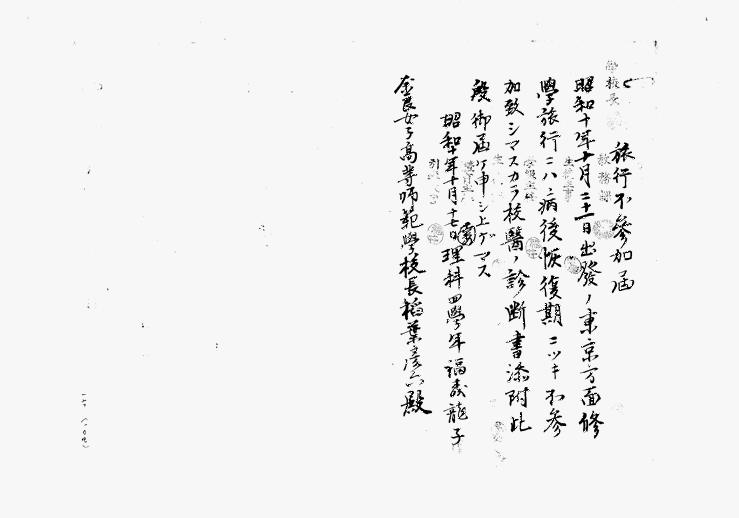 旅行不參加届
昭和十年十月二十一日出發ノ東京方面修
學旅行ニハ病後恢復期ニツキ不參
加致シマスカラ校醫ノ診斷書添附此
段御届ケ申シ上ゲマス
昭和十年十月十七日 理科四學年 福森龍子
奈良女子高等師範學校長稻葉彦六殿
學校長
教務課
生徒主事
學級主任